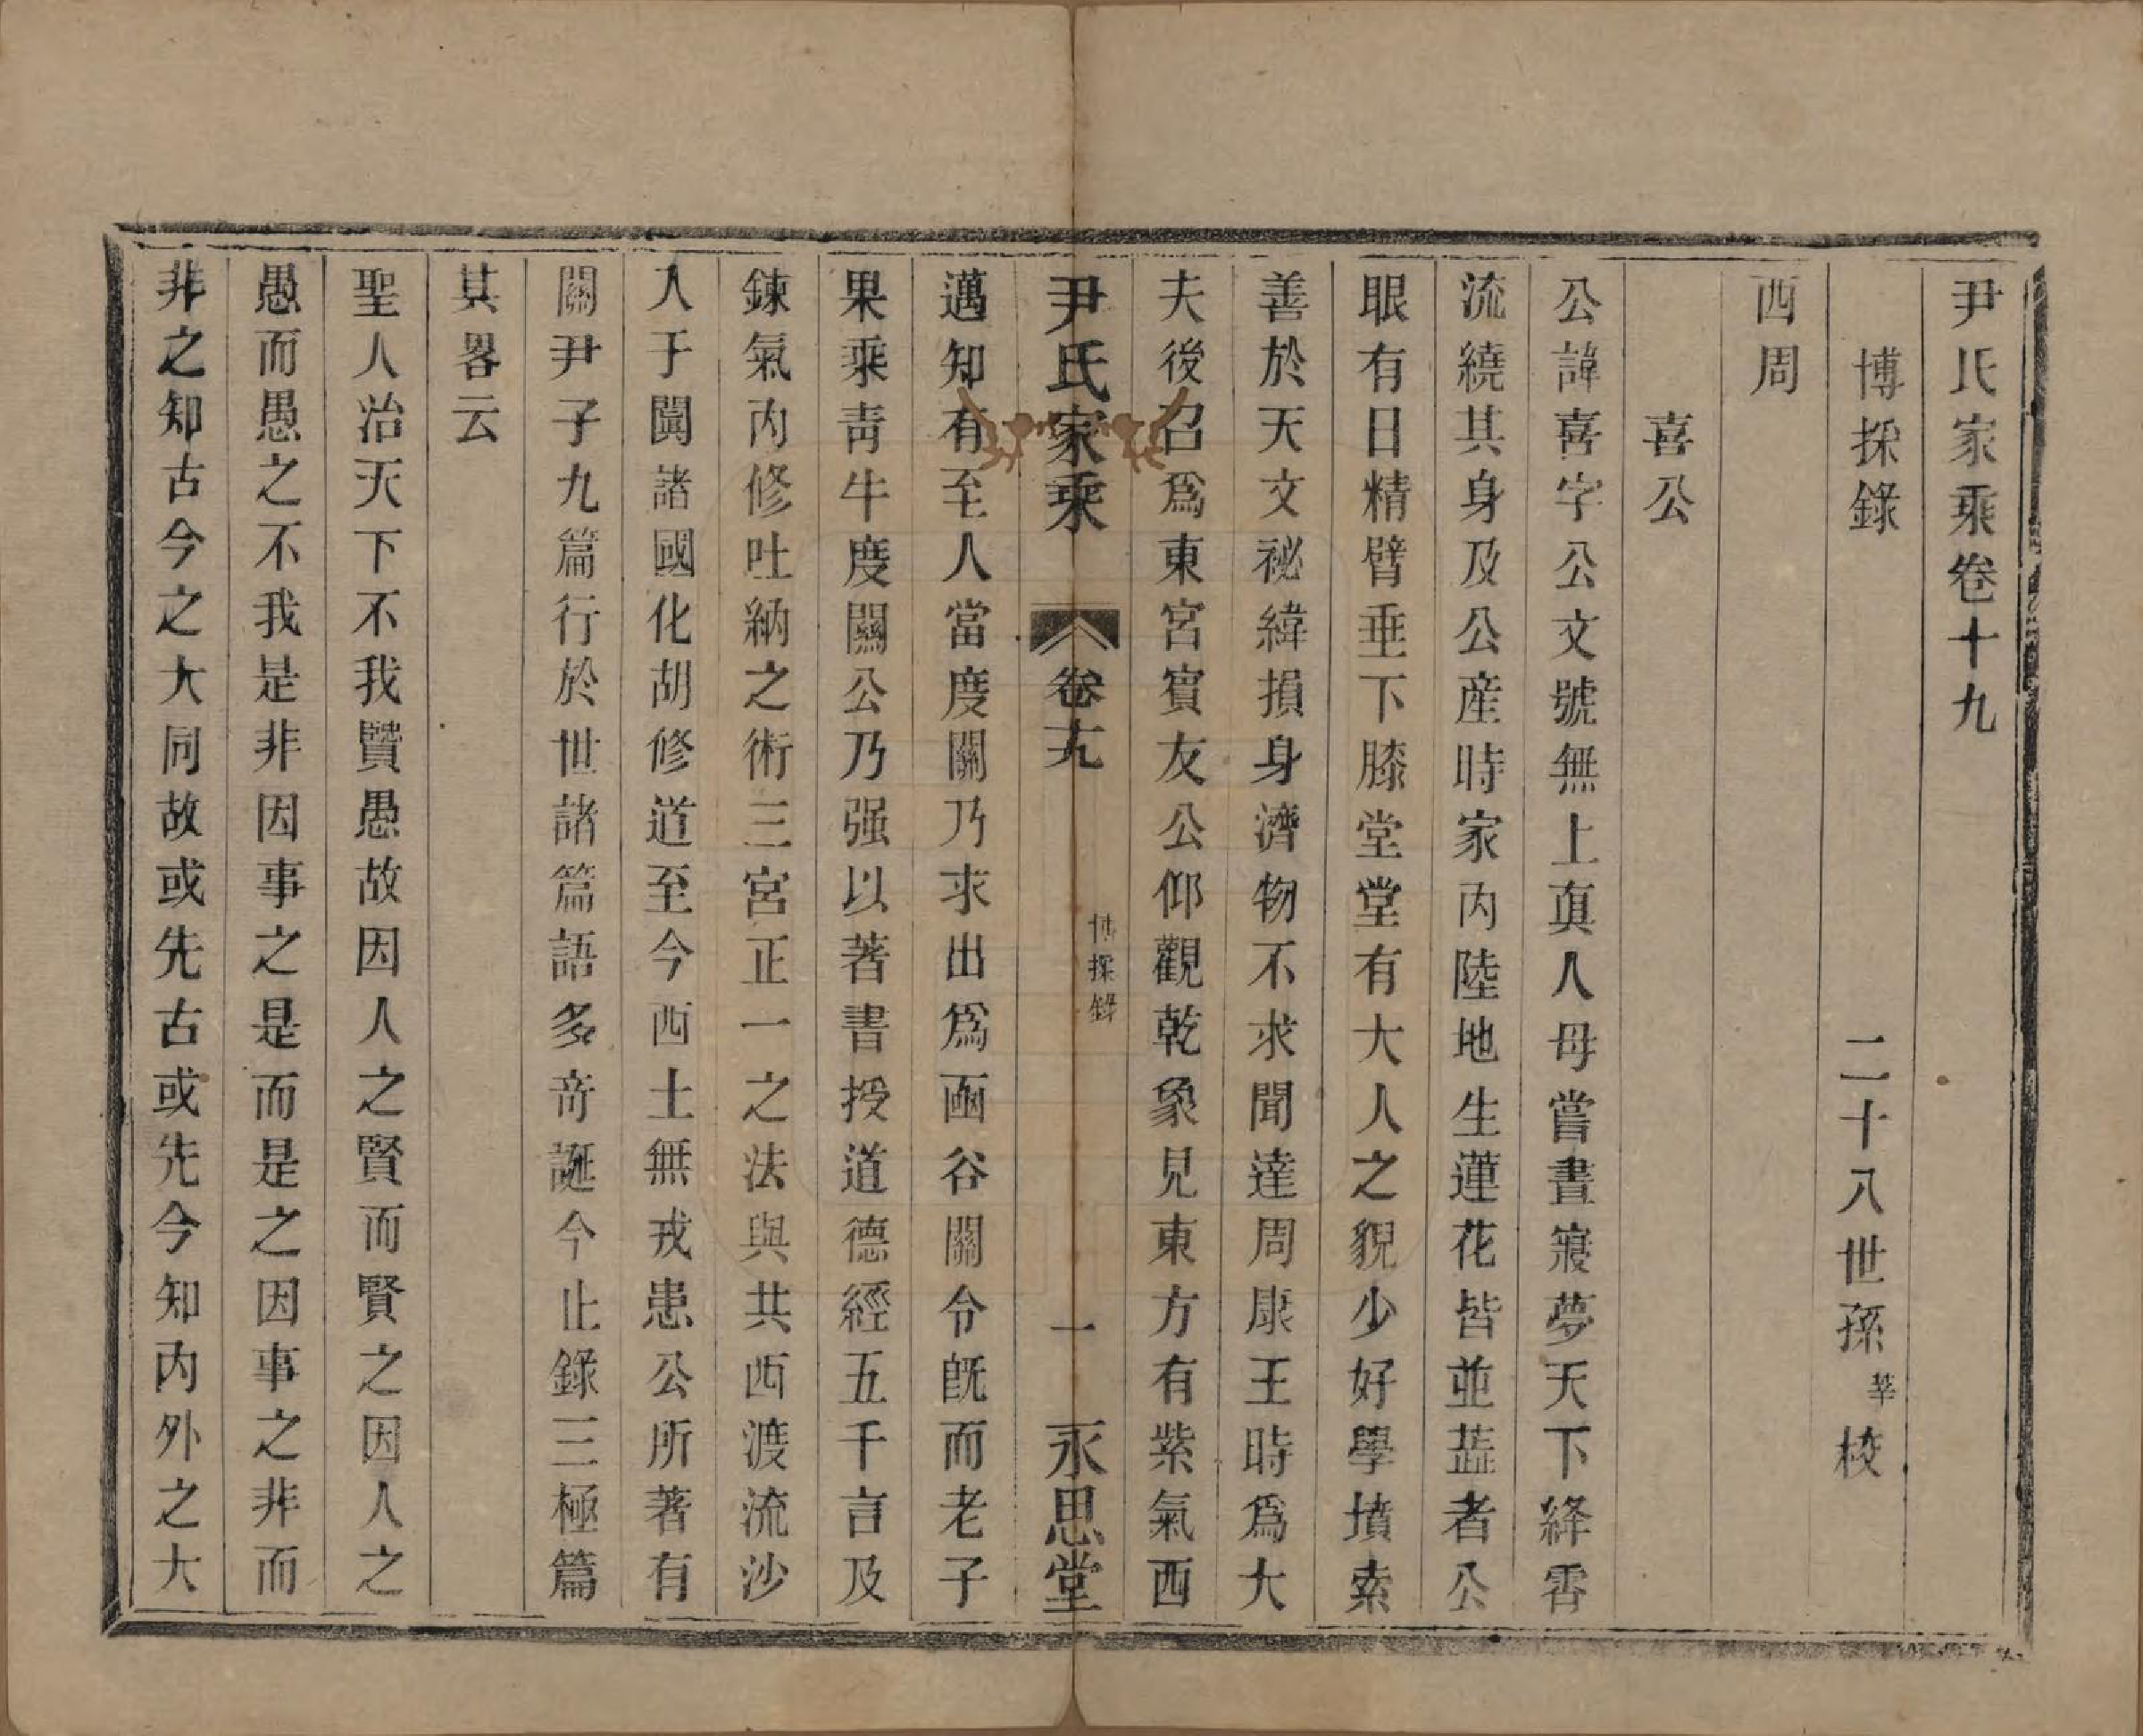 尹氏家乘卷十九
博採錄 二十八世孫莘校
西周
喜公
公諱喜字公文號無上眞人母嘗晝寢夢天下絳霄
流繞其身及公產時家內陸地生蓮花皆並蕋者公
眼有日精臂垂下膝堂堂有大人之貌少好學墳索
善於天文祕緯損身濟物不求聞達周康王時爲大
夫後召爲東宮賓友公仰觀乾象見東方有紫氣西
尹氏家乘 卷十九 博採錄 一 永思堂
邁知有至人當度關乃求出爲函谷關令旣而老子
果乘靑牛度關公乃强以著書授道德經五千言及
鍊氣內修吐納之術三宮正一之法與共西渡流沙
入于闐諸國化胡修道至今西土無戎患公所著有
關尹子九篇行於世諸篇語多奇誕今止錄三極篇
其畧云
聖人治天下不我賢愚故因人之賢而賢之因人之
愚而愚之不我是非因事之是而是之因事之非而
非之知古今之大同故或先古或先今知內外之大